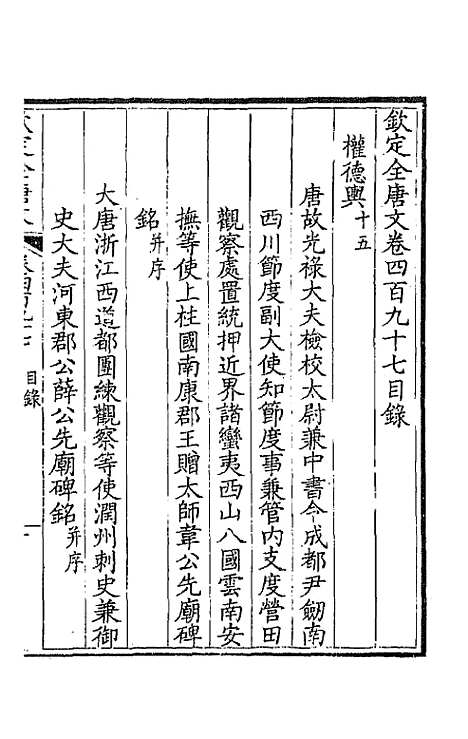 欽定全唐文卷四百九十七目錄
權德輿十五
唐故光祿大夫檢校太尉兼中書令成都尹劒南
西川節度副大使知節度事兼管內支度營田
觀察處置統押近界諸蠻夷西山八國雲南安
撫等使上柱國南康郡王贈太師韋公先廟碑
銘并序
大唐浙江西道都團練觀察等使潤州刺史兼御
史大夫河東郡公薛公先廟碑銘并序
目錄
一